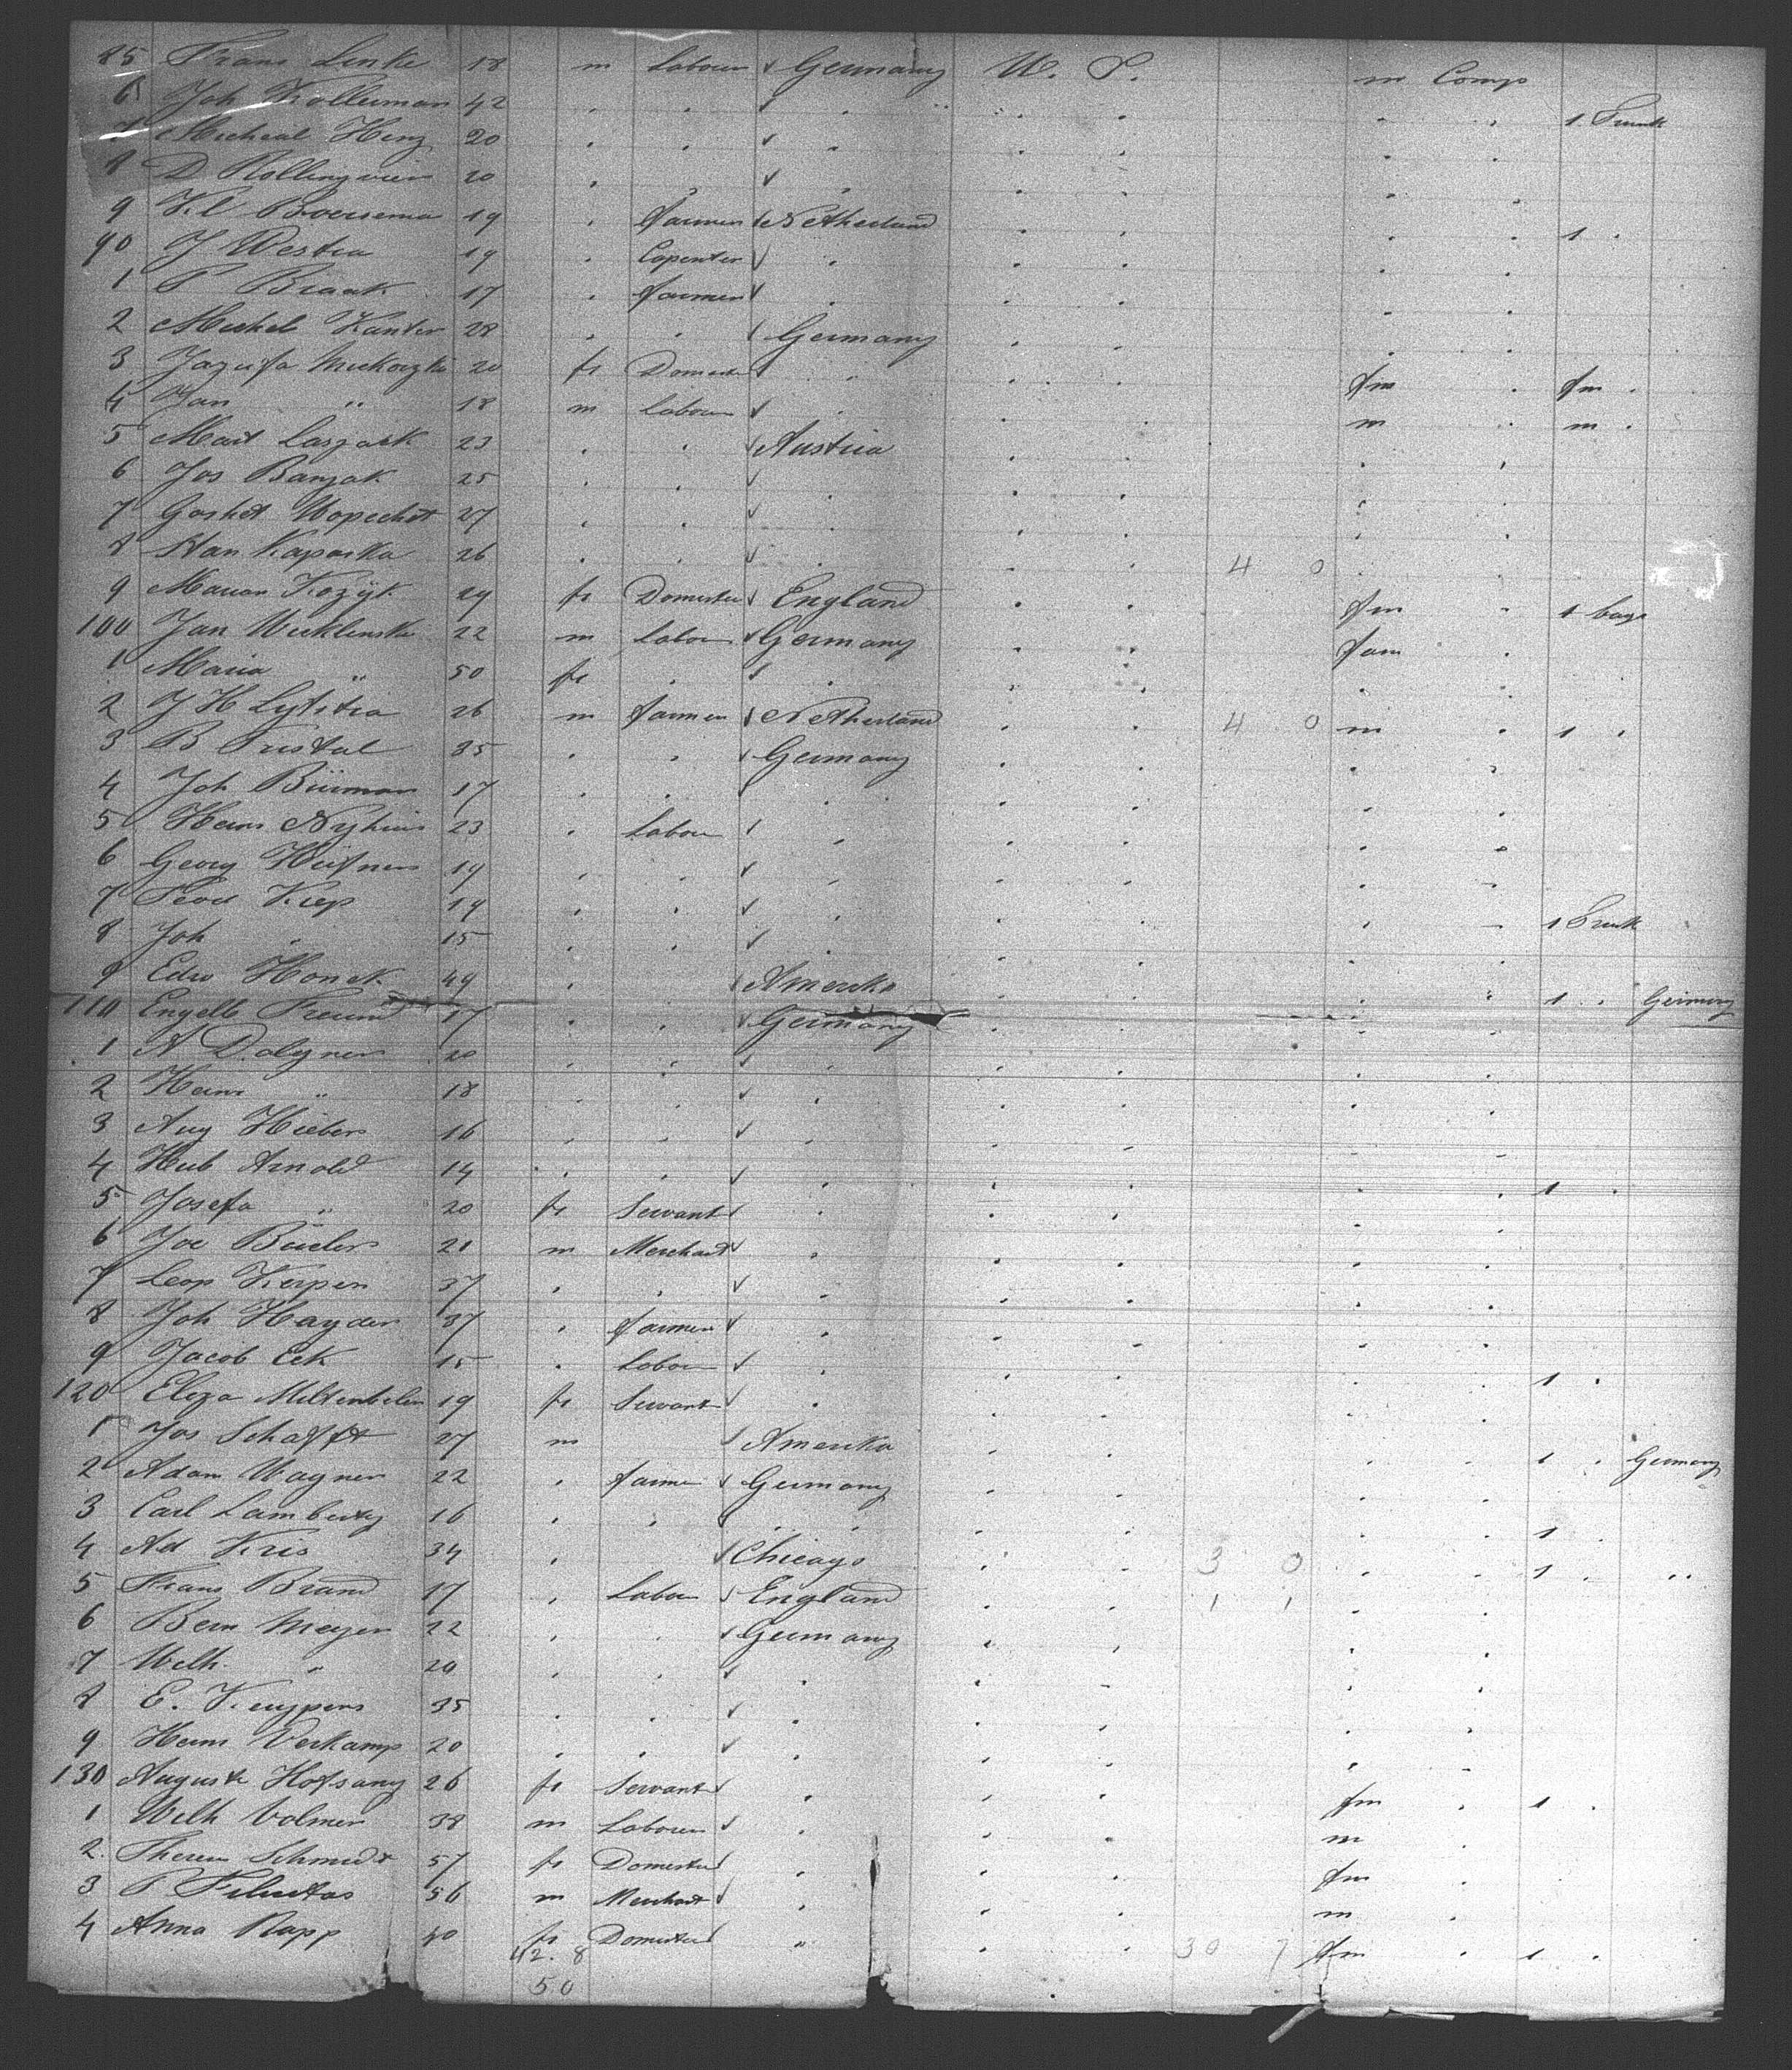 85 Frans Linke 18 m Labour ✓ Germany U. S. m Comp
6 Joh Kolleman 42 . . ✓ . . . . . 1 Trunk
7 Micheal Henz 20 . . ✓ . . . . .
8 D Rollingmier 20 . . ✓ . . . . .
9 Kl Boersema 19 . farmer ✓ Netherland . . . . 1 .
90 J Westra 19 . Capenter ✓ . . . . .
1 P Braak 17 . farmer ✓ . . . . .
2 Michel Kanter 28 . . ✓ Germany . . . .
3 20 fe Domestic ✓ . . . fm . fm .
4 Jan " 18 m Labour ✓ . . . m . m .
5 Mart 23 . . ✓ Austria . . . .
6 Jos Banzak 25 . . ✓ . . . . .
7 27 . . ✓ . . . . .
8 Stan Kaparka 26 . . ✓ . . . 4 0 . .
9 Marian Kozyk 29 fe Domestic ✓ England . . fm . 1 bags
100 Jan 22 m Labour ✓ Germany . . fam .
1 Maria " 50 fe . ✓ . . . . .
2 J H 26 m farmer ✓ Netherland . . 4 0 m . 1 .
3 B Tristal 35 . . ✓ Germany . . . .
4 Joh 17 . . ✓ . . . . .
5 Herm 23 . Labour ✓ . . . . .
6 Georg 19 . . ✓ . . . . .
7 Kiep 19 . . ✓ . . . . . 1 Trunk
8 Joh . 15 . . ✓ . . . . .
9 Edw Honek 49 . ✓ Amerika . . . . 1 . Germany
110 Engelb Freund 17 . . ✓ Germany . . . .
1 A Dolgner 20 . . ✓ . . . . .
2 Herm " 18 . . ✓ . . . . .
3 Aug Hieber 16 . . ✓ . . . . .
4 Hub Arnold 14 . . ✓ . . . . . 1 .
5 Josefa " 20 fe Servant ✓ . . . . .
6 Joe 21 m Merchant ✓ . . . . .
7 Leop Kerpen 37 . . ✓ . . . . .
8 Joh Hayder 37 . farmer ✓ . . . . .
9 Jacob Eck 15 . Labour ✓ . . . . . 1 .
120 Eliza 19 fe Servant ✓ . . . . .
1 Jos Schafft 27 m ✓ Amerika . . . . 1 . Germany
2 Adam Wagner 22 . farmer ✓ Germany . . . .
3 Carl Lamberty 16 . . ✓ . . . . . 1 .
4 Ad Kris 34 . ✓ Chicago . . 3 0 . . 1 . "
5 Frans Brand 17 . Labour ✓ England . . 1 1 . .
6 Bern Meyer 22 . . ✓ Germany . . . .
7 Wilh. " 20 . . ✓ . . . . .
8 E. Kuypers 35 . . ✓ . . . . .
9 Herm Verkamp 20 . . ✓ . . . . .
130 Auguste Hofsang 26 fe Servant ✓ . . . fm . 1 .
1 Wilh Volmer 38 m Labourer ✓ . . . m .
2. Therese Schmidt 57 fe Domestic ✓ . . . fm .
3 P 56 m Merchant ✓ . . . m .
4 Anna Rapp 40 fe Domestic ✓ " . . 30 7 fm . 1 .
42. 8
50